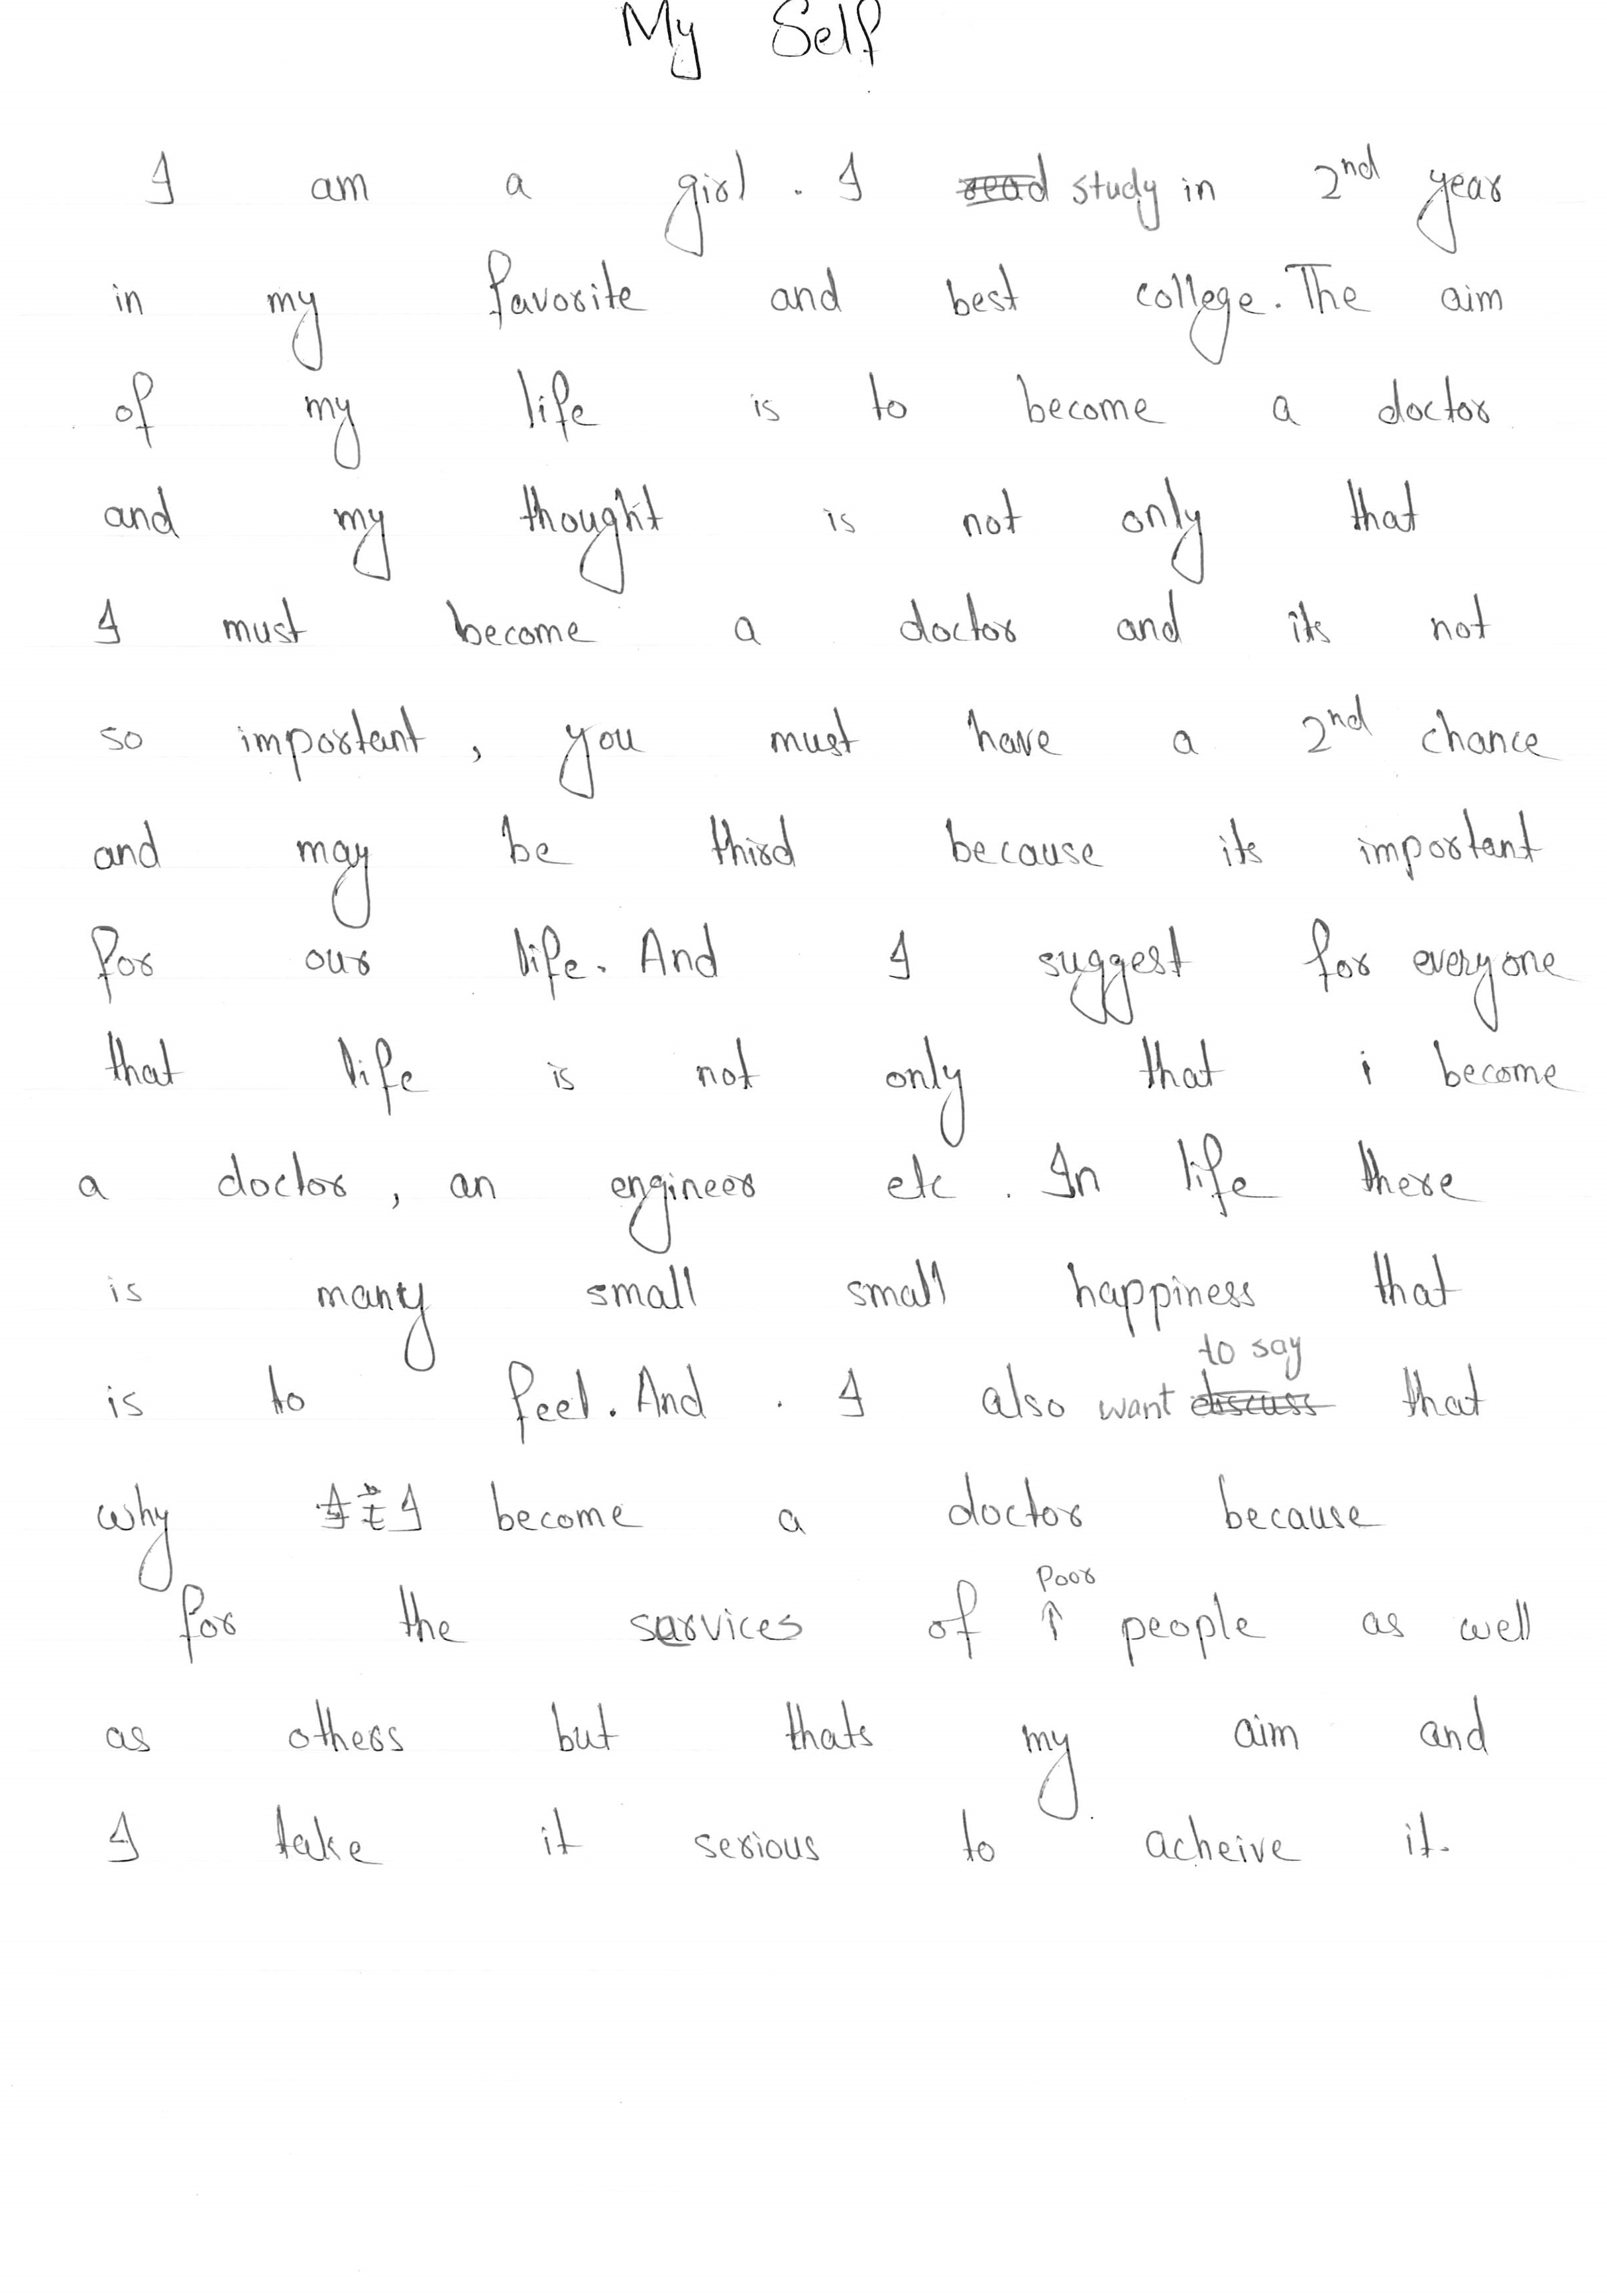 My Self
I am a girl. I read study in 2nd year
in my favorite and best college. The aim
of my life is to become a doctor
and my thought is not only that
I must become a doctor and its not
so important, you must have a 2nd chance
and may be third because its important
for our life. And I suggest for everyone
that life is not only that i become
a doctor, an engineer etc. In life there
is many small small happiness that
to say
is to feel. And. I also want discuss that
why I become a doctor because
Poor
for the services of ↑ people as well
as others but thats my aim and
I take it serious to acheive it.